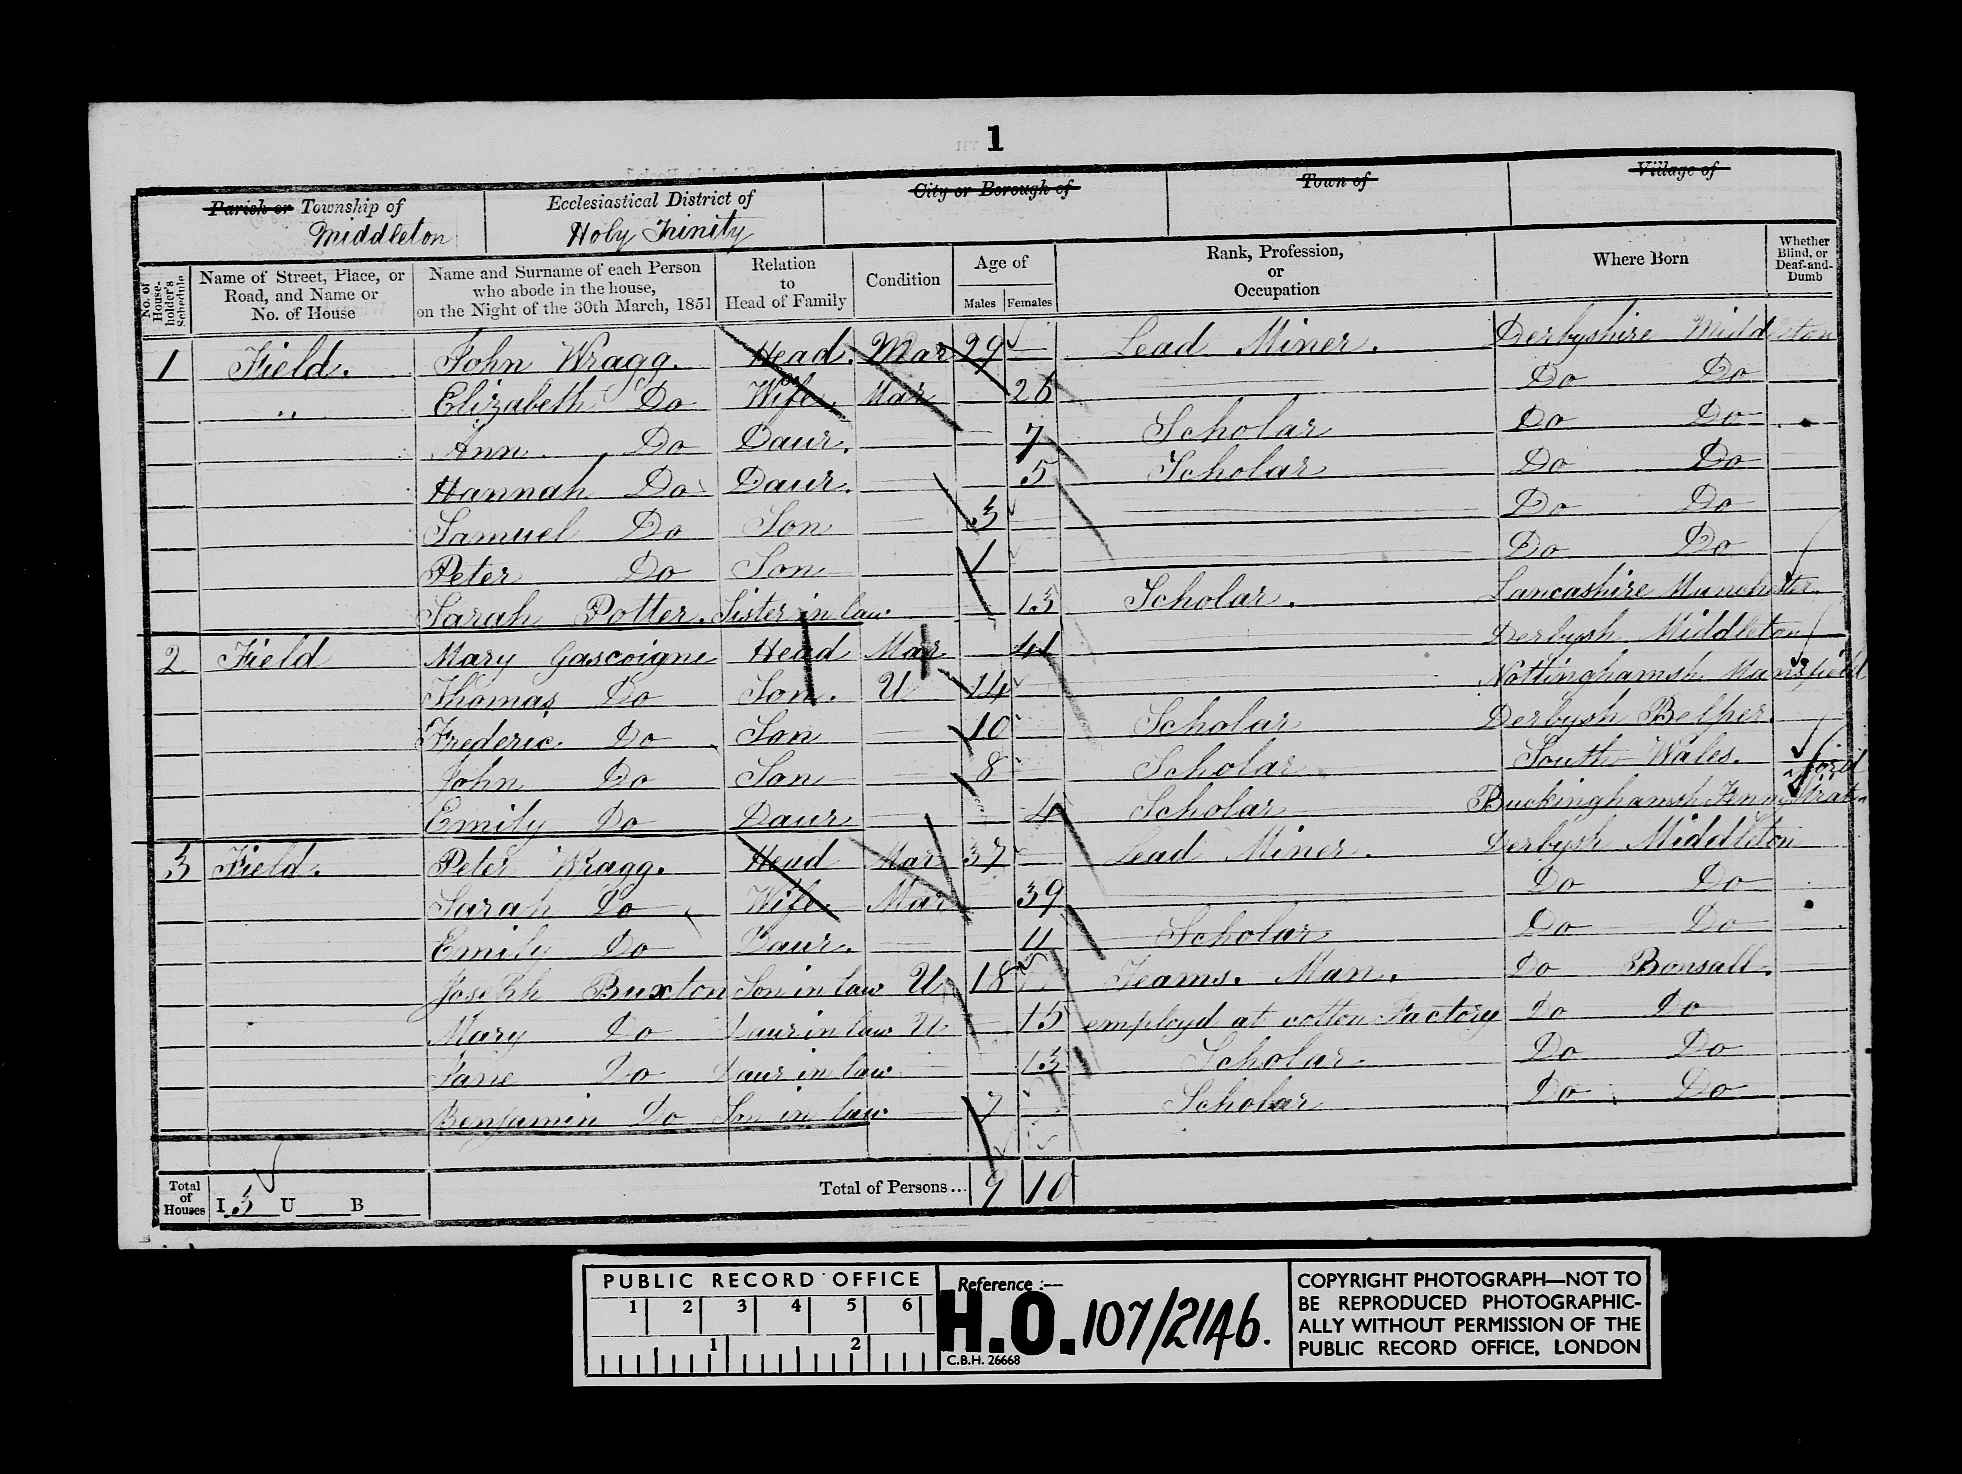 1
Parish or Township of Ecclesiastical District of City or Borough of Town of Village of
Middleton Holy Trinity
No. of House-holder's Schedule Name of Street, Place, or Road, and Name or No. of House Name and Surname of each Person who abode in the house, on the Night of the 30th March, 1851 Relation to Head of Family Condition Age of Males Females Rank, Profession, or Occupation Where Born Whether Blind, or Deaf-and-Dumb
1 Field. John Wragg. Head. Mar 29 Lead Miner. Derbyshire Middleton
,, Elizabeth Do Wife. Mar 26 Do Do
Ann Do Daur. 7 Scholar Do Do
Hannah Do Daur. 5 Scholar Do Do
Samuel Do Son 3 Do Do
Peter Do Son 1 Do Do
Sarah Potter. Sister in law 13 Scholar. Lancashire Manchester.
2 Field Mary Gascoigne Head Mar 41 Derbysh Middleton
Thomas Do Son. U 14 Nottinghamsh Mansfield
Frederic Do Son 10 Scholar Derbysh Belper.
John Do Son 8 Scholar South Wales.
Emily Do Daur 4 Scholar Buckinghamsh Fenny Stratford
3 Field. Peter Wragg. Head Mar 37 Lead Miner. Derbysh Middleton
Sarah Do Wife. Mar 39 Do Do
Emily Do Daur. 11 Scholar Do Do
Joseph Buxton Son in law U 18 Teams. Man. Do Bonsall.
Mary Do Daur in law U 15 employd at cotton Factory Do Do
Jane Do Daur in law 13 Scholar Do Do
Benjamin Do Son in law 7 Scholar Do Do
Total of Houses I 3 U B Total of Persons... 9 10
PUBLIC RECORD OFFICE
1 2 3 4 5 6
1 2
Reference :—
H.O. 107/2146.
C.B.H. 26668
COPYRIGHT PHOTOGRAPH—NOT TO
BE REPRODUCED PHOTOGRAPHIC-
ALLY WITHOUT PERMISSION OF THE
PUBLIC RECORD OFFICE, LONDON